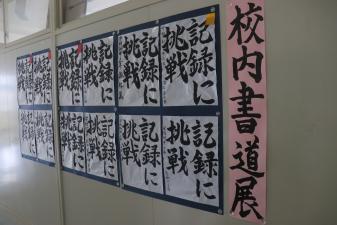 校内書道展
記録に
挑戦
記録に
挑戦
記録に
挑戦
記録に
挑戦
記録に
挑戦
記録に
挑戦
記録に
挑戦
記録に
挑戦
記録に
挑戦
記録に
挑戦